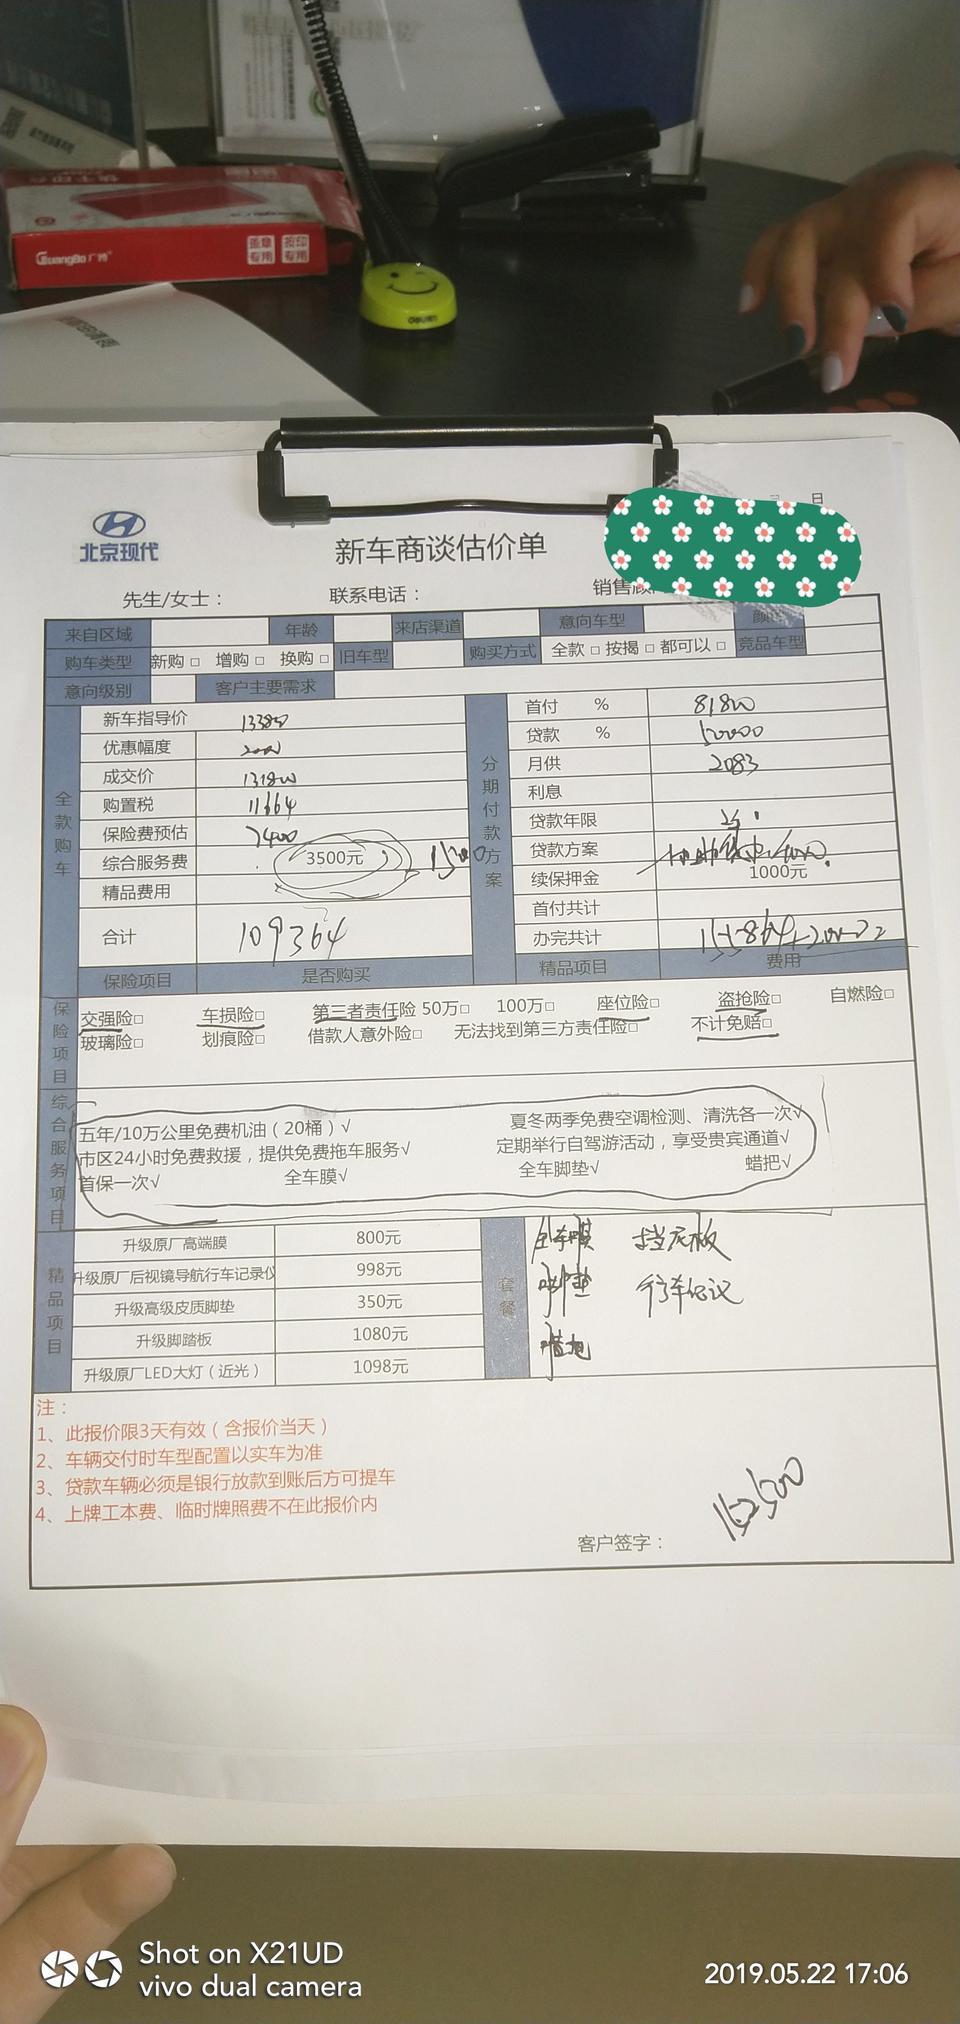 GuangBo 广博
盖章专用 按印专用
deli
日
北京现代
新车商谈估价单
先生/女士： 联系电话： 销售顾
来自区域 年龄 来店渠道 意向车型 颜
购车类型 新购□ 增购□ 换购□ 旧车型 购买方式 全款□按揭□都可以□ 竞品车型
意向级别 客户主要需求
全款购车
新车指导价 133800
优惠幅度 2000
成交价 131800
购置税 11664
保险费预估 7400
综合服务费 3500元
精品费用
合计 109364
分期付款方案
首付 % 81800
贷款 % 50000
月供 2083
利息
贷款年限
贷款方案
续保押金 1000元
首付共计
办完共计
保险项目 是否购买 精品项目 费用
保险项目
交强险□ 车损险□ 第三者责任险 50万□ 100万□ 座位险□ 盗抢险□ 自燃险□
玻璃险□ 划痕险□ 借款人意外险□ 无法找到第三方责任险□ 不计免赔□
综合服务项目
五年/10万公里免费机油（20桶）√ 夏冬两季免费空调检测、清洗各一次√
市区24小时免费救援，提供免费拖车服务√ 定期举行自驾游活动，享受贵宾通道√
首保一次√ 全车膜√ 全车脚垫√ 蜡把√
精品项目
升级原厂高端膜 800元
升级原厂后视镜导航行车记录仪 998元
升级高级皮质脚垫 350元
升级脚踏板 1080元
升级原厂LED大灯（近光） 1098元
套餐
全车膜 挡泥板
脚垫 行车记议
注：
1、此报价限3天有效（含报价当天）
2、车辆交付时车型配置以实车为准
3、贷款车辆必须是银行放款到账后方可提车
4、上牌工本费、临时牌照费不在此报价内
客户签字： 152500
Shot on X21UD
vivo dual camera
2019.05.22 17:06